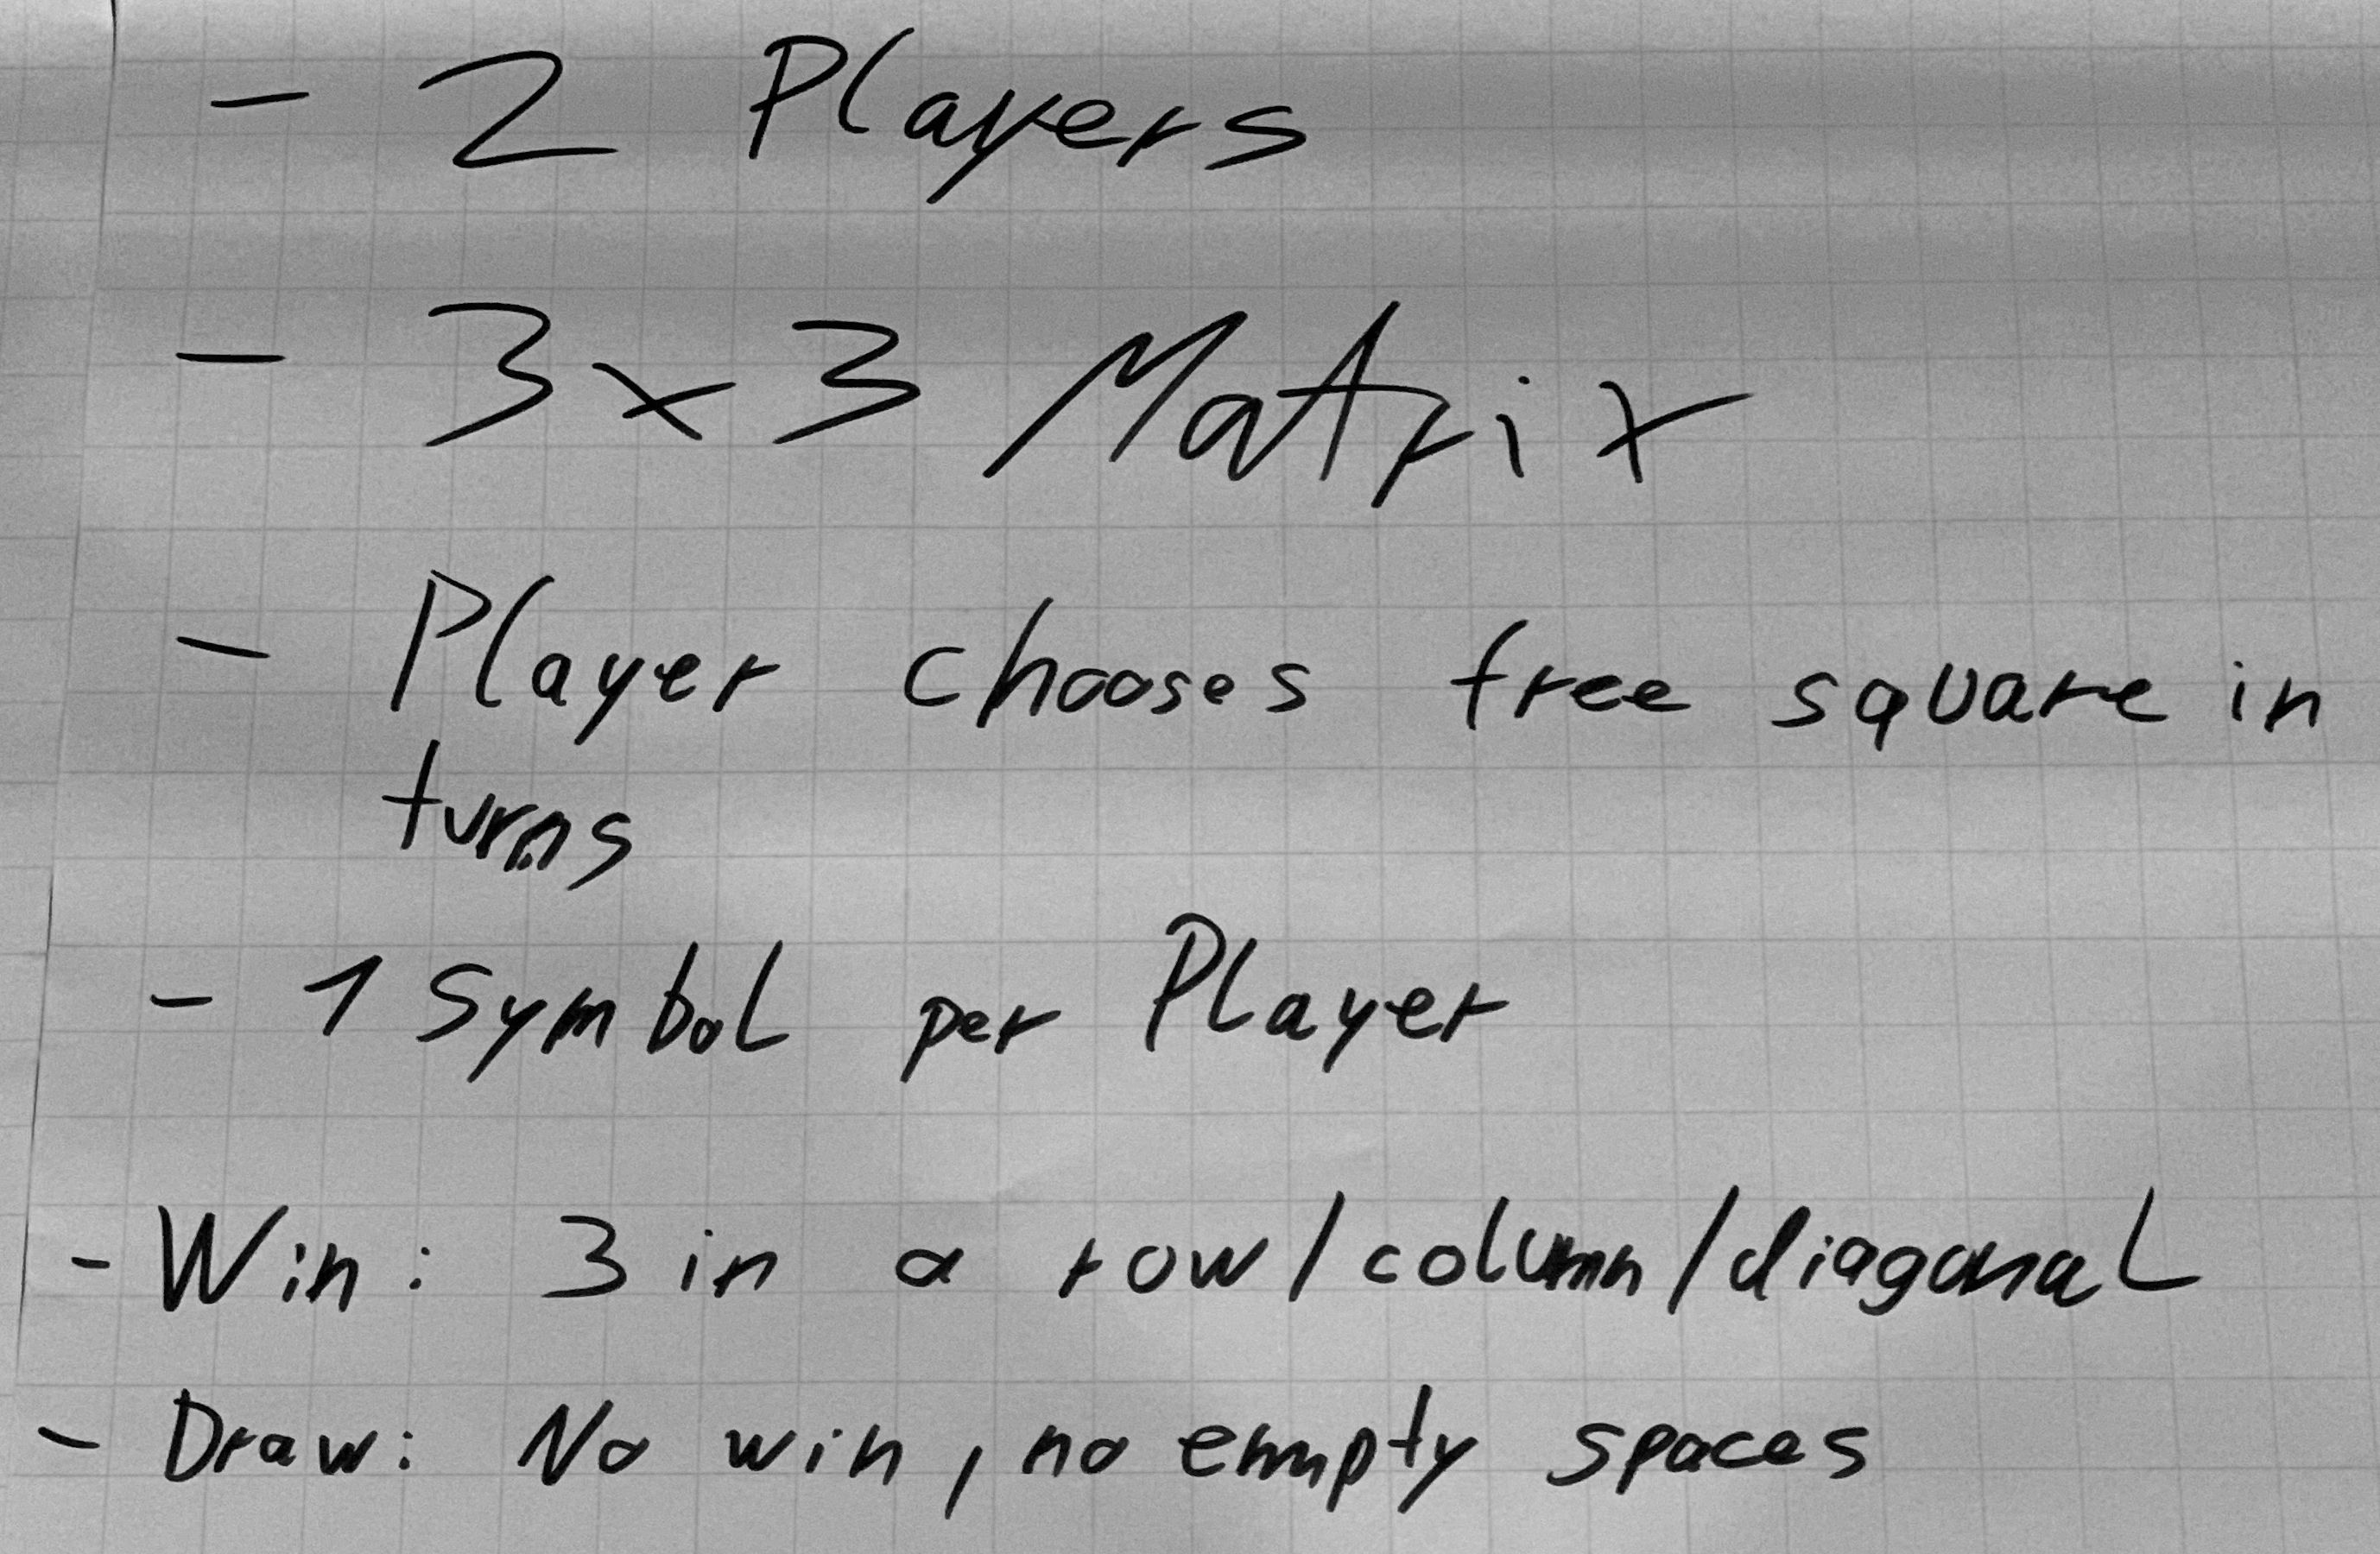 - 2 Players
- 3x3 Matrix
- Player chooses free square in
turns
- 1 Symbol per Player
- Win: 3 in a row/column/diagonal
- Draw: No win, no empty spaces